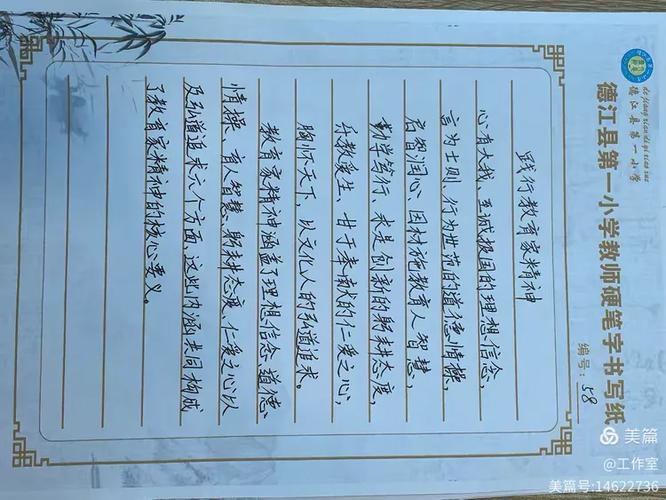 德江县第一小学
德江县第一小学教师硬笔字书写纸
编号：58
践行教育家精神
心有大我、至诚报国的理想信念，
言为士则、行为世范的道德情操，
启智润心、因材施教育人智慧，
勤学笃行、求是创新的躬耕态度，
乐教爱生、甘于奉献的仁爱之心，
胸怀天下、以文化人的弘道追求。
教育家精神涵盖了理想信念、道德
情操、育人智慧、躬耕态度、仁爱之心以
及弘道追求六个方面，这些内涵共同构成
了教育家精神的核心要义。
美篇
@工作室
美篇号:14622736